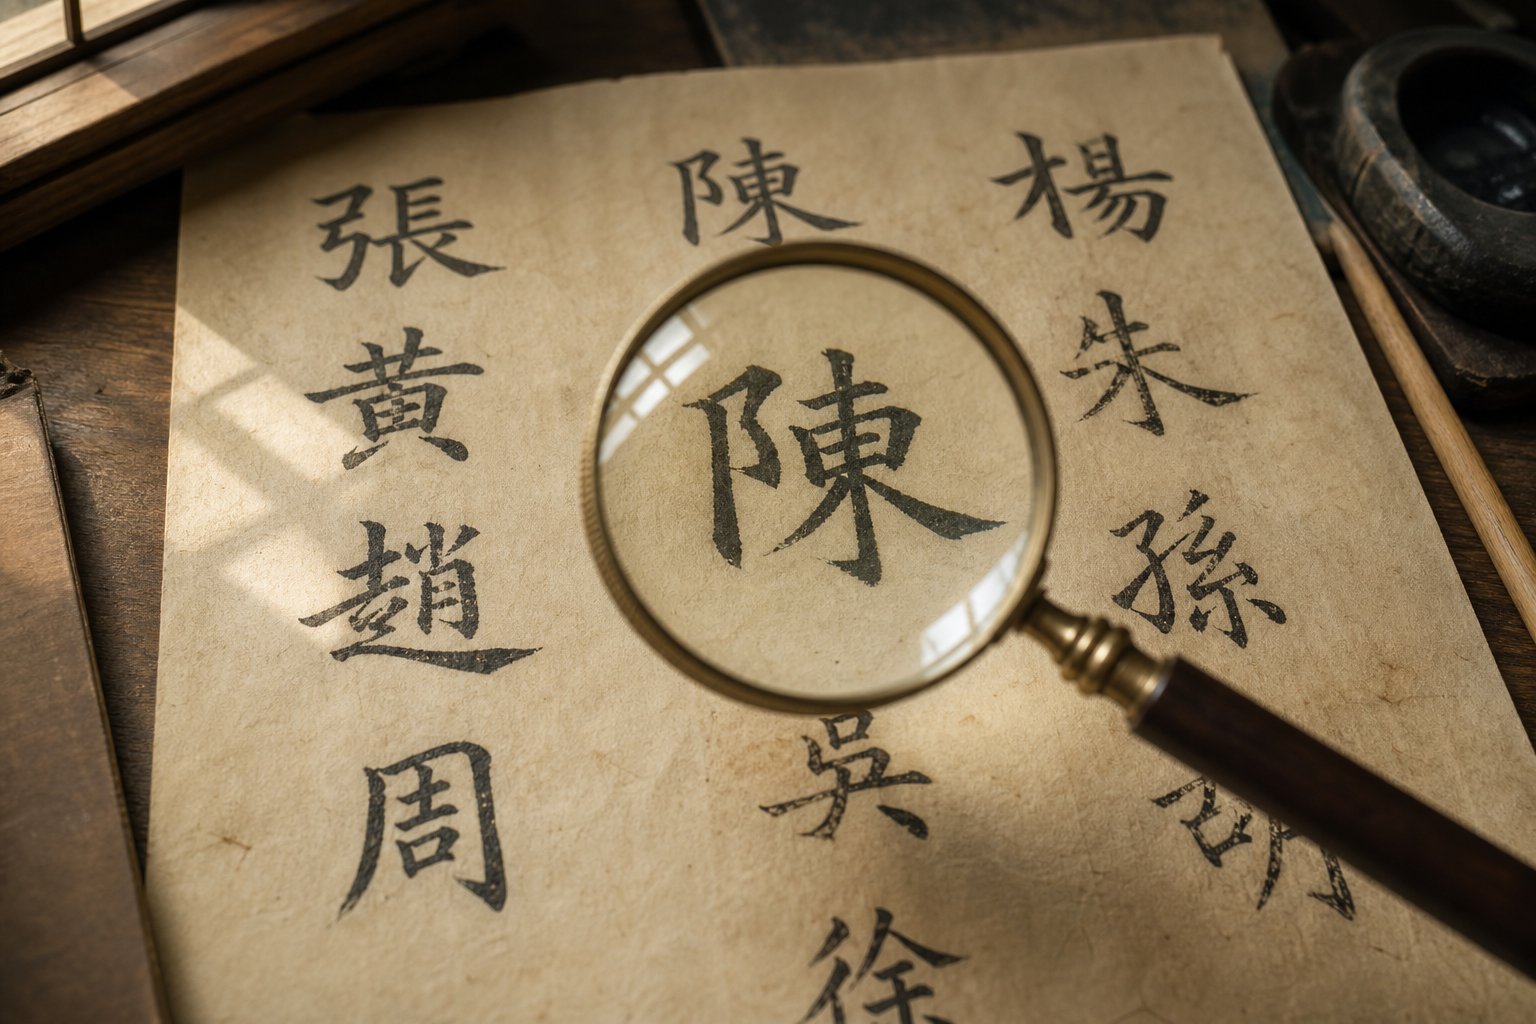 張 陳 楊
黃 陳 朱
趙 孫
周 吳 胡
徐